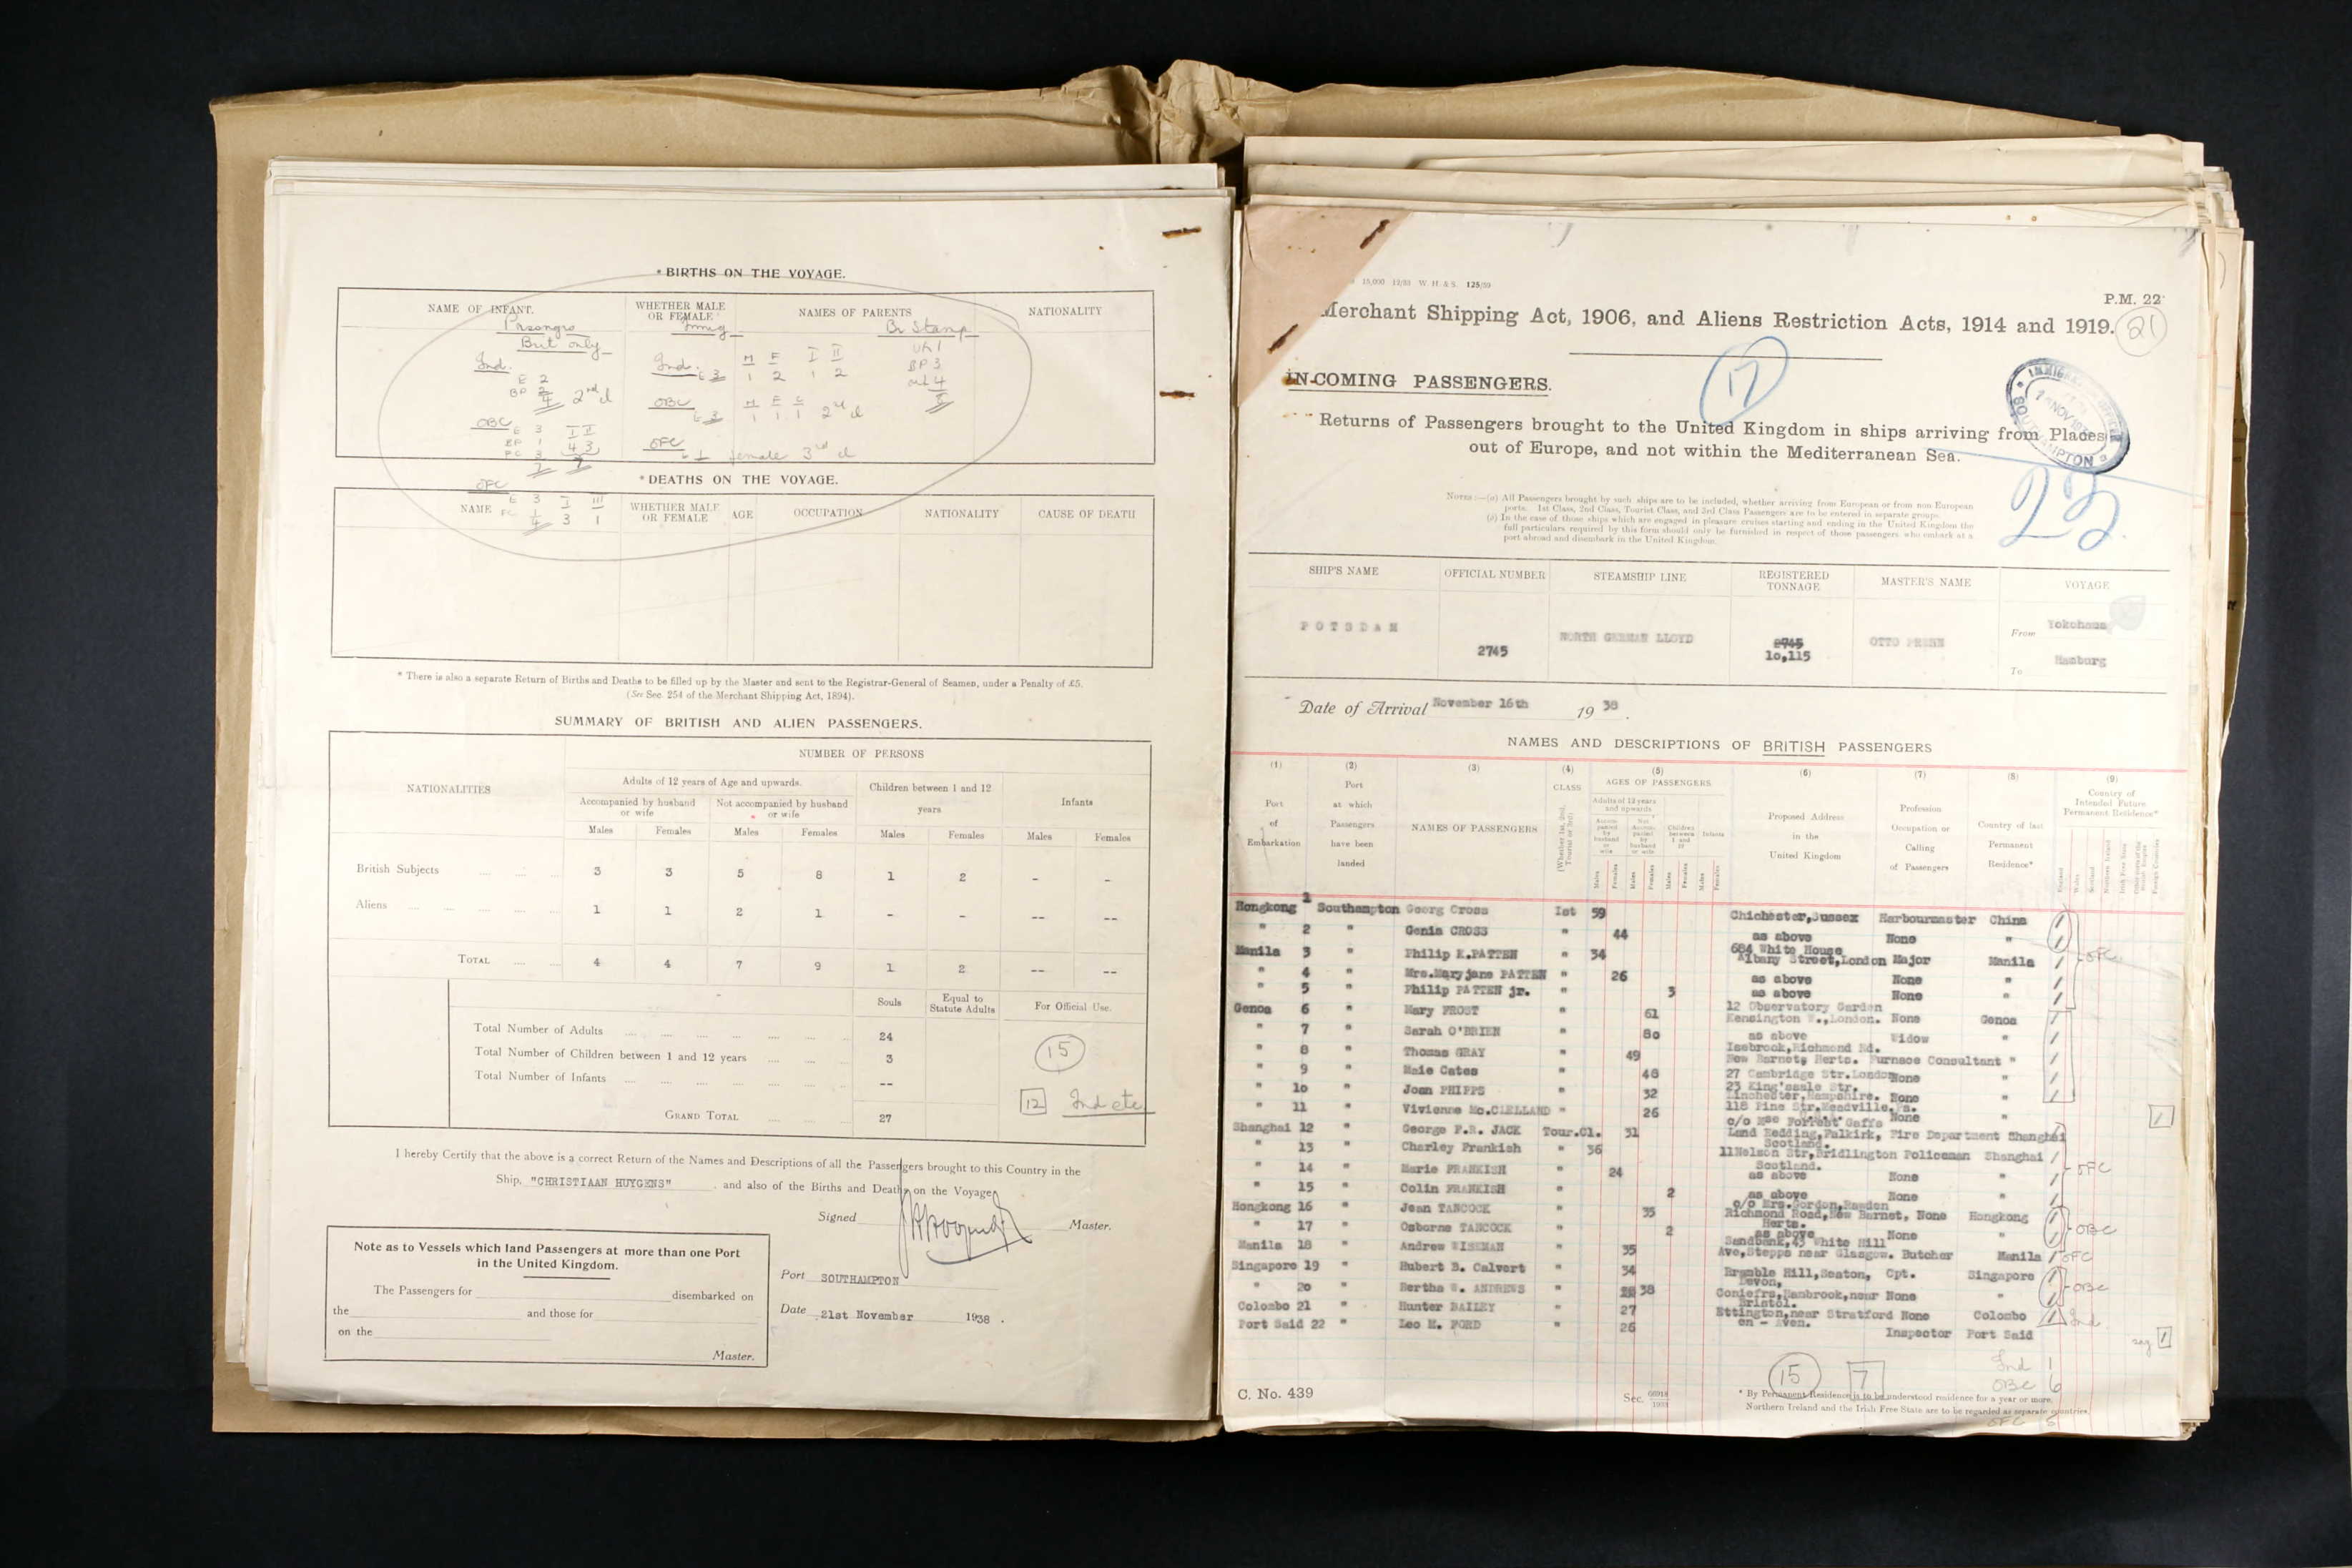 * BIRTHS ON THE VOYAGE.
NAME OF INFANT. WHETHER MALE OR FEMALE NAMES OF PARENTS NATIONALITY
But only
Ind. E 2
BP 2
4 2nd
OBC E 3 I II
BP 1 4 3
FC 3
7 7
OFC E 3 I III
FC 1
4 3 1
Ind. E 3 M F I II
1 2 1 2
OBC E 3 M F C
1 1 1 2nd
OFC
1 female 3rd
Br Stamp
UK 1
BP 3
8
* DEATHS ON THE VOYAGE.
NAME WHETHER MALE OR FEMALE AGE OCCUPATION NATIONALITY CAUSE OF DEATH
* There is also a separate Return of Births and Deaths to be filled up by the Master and sent to the Registrar-General of Seamen, under a Penalty of £5.
(See Sec. 254 of the Merchant Shipping Act, 1894).
SUMMARY OF BRITISH AND ALIEN PASSENGERS.
NATIONALITIES NUMBER OF PERSONS
Adults of 12 years of Age and upwards. Children between 1 and 12 years Infants
Accompanied by husband or wife Not accompanied by husband or wife
Males Females Males Females Males Females Males Females
British Subjects 3 3 5 8 1 2 - -
Aliens 1 1 2 1 - - -- --
TOTAL 4 4 7 9 1 2 -- --
Souls Equal to Statute Adults For Official Use.
Total Number of Adults 24
Total Number of Children between 1 and 12 years 3
Total Number of Infants --
GRAND TOTAL 27
15
12 Ind etc
I hereby Certify that the above is a correct Return of the Names and Descriptions of all the Passengers brought to this Country in the
Ship, "CHRISTIAAN HUYGENS" and also of the Births and Deaths on the Voyage
Signed Master.
Note as to Vessels which land Passengers at more than one Port
in the United Kingdom.
The Passengers for disembarked on
the and those for
on the
Master.
Port SOUTHAMPTON
Date 21st November 1938 .
15,000 12/33 W. H. & S. 125/39
P.M. 22
Merchant Shipping Act, 1906, and Aliens Restriction Acts, 1914 and 1919.
21
17
IN-COMING PASSENGERS.
IMMIGRATION OFFICER
NOV 193
SOUTHAMPTON
Returns of Passengers brought to the United Kingdom in ships arriving from Places
out of Europe, and not within the Mediterranean Sea.
22
NOTES:—(a) All Passengers brought by such ships are to be included, whether arriving from European or from non European
ports. 1st Class, 2nd Class, Tourist Class, and 3rd Class Passengers are to be entered in separate groups.
(b) In the case of those ships which are engaged in pleasure cruises starting and ending in the United Kingdom the
full particulars required by this form should only be furnished in respect of those passengers who embark at a
port abroad and disembark in the United Kingdom.
SHIP'S NAME OFFICIAL NUMBER STEAMSHIP LINE REGISTERED TONNAGE MASTER'S NAME VOYAGE
POTSDAM 2745 NORTH GERMAN LLOYD 2745 10,115 OTTO PREHN From Yokohama
To Hamburg
Date of Arrival November 16th 19 38 .
NAMES AND DESCRIPTIONS OF BRITISH PASSENGERS
(1) (2) (3) (4) (5) (6) (7) (8) (9)
Port of Embarkation
Port at which Passengers have been landed
NAMES OF PASSENGERS
CLASS (Whether 1st, 2nd, Tourist or 3rd)
AGES OF PASSENGERS
Adults of 12 years and upwards
Accompanied by husband or wife Not Accompanied by husband or wife Children between 1 and 12 Infants
Males Females Males Females Males Females Males Females
Proposed Address in the United Kingdom
Profession Occupation or Calling of Passengers
Country of last Permanent Residence*
Country of Intended Future Permanent Residence*
England Wales Scotland Northern Ireland Irish Free State Other parts of the British Empire Foreign Countries
Hongkong 1 Southampton Georg Cross Ist 59 Chichester,Sussex Harbourmaster China
" 2 " Genia CROSS " 44 as above None "
Manila 3 " Philip K.PATTEN " 34 684 White House Albany Street,London Major Manila OFC
" 4 " Mrs.Maryjane PATTEN " 26 as above None "
" 5 " Philip PATTEN jr. " 3 as above None "
Genoa 6 " Mary FROST " 61 12 Observatory Garden Kensington W.,London. None Genoa
" 7 " Sarah O'BRIEN " 80 as above Widow "
" 8 " Thomas GRAY " 49 Isebrook,Richmond Rd. New Barnet, Herts. Furnace Consultant "
" 9 " Maie Cates " 46 27 Cambridge Str.London None "
" 10 " Joan PHIPPS " 32 23 King'sgale Str. Winchester,Hampshire. None "
" 11 " Vivienne Mc.CLELLAND " 26 118 Pine Str.Meadville,Pa. None " 1
Shanghai 12 " George F.R. JACK Tour.Cl. 31 c/o Mse Forrest Gaffs Land Redding,Falkirk, Scotland. Fire Department Shanghai
" 13 " Charley Frankish " 36 11Nelson Str,Bridlington Scotland. Policeman Shanghai
" 14 " Marie FRANKISH " 24 as above None " OFC
" 15 " Colin FRANKISH " 2 as above None "
Hongkong 16 " Jean TANCOCK " 35 c/o Mrs.Gordon,Rawden Richmond Road,New Barnet, Herts. None Hongkong
" 17 " Osborne TANCOCK " 2 as above None " OBC
Manila 18 " Andrew WISEMAN " 35 Sandbank,43 White Hill Ave,Stepps near Glasgow. Butcher Manila OFC
Singapore 19 " Hubert B. Calvert " 34 Bramble Hill,Seaton, Devon, Cpt. Singapore
" 20 " Bertha W. ANDREWS " 38 Coniefrs,Hanbrook,near Bristol. None " OBC
Colombo 21 " Hunter BAILEY " 27 Ettington,near Stratford on - Aven. None Colombo Ind
Port Said 22 " Leo M. FORD " 26 Inspector Port Said 1
15 7
Ind 1
OBC 6
OFC 8
C. No. 439
Sec.
* By Permanent Residence is to be understood residence for a year or more.
Northern Ireland and the Irish Free State are to be regarded as separate countries.